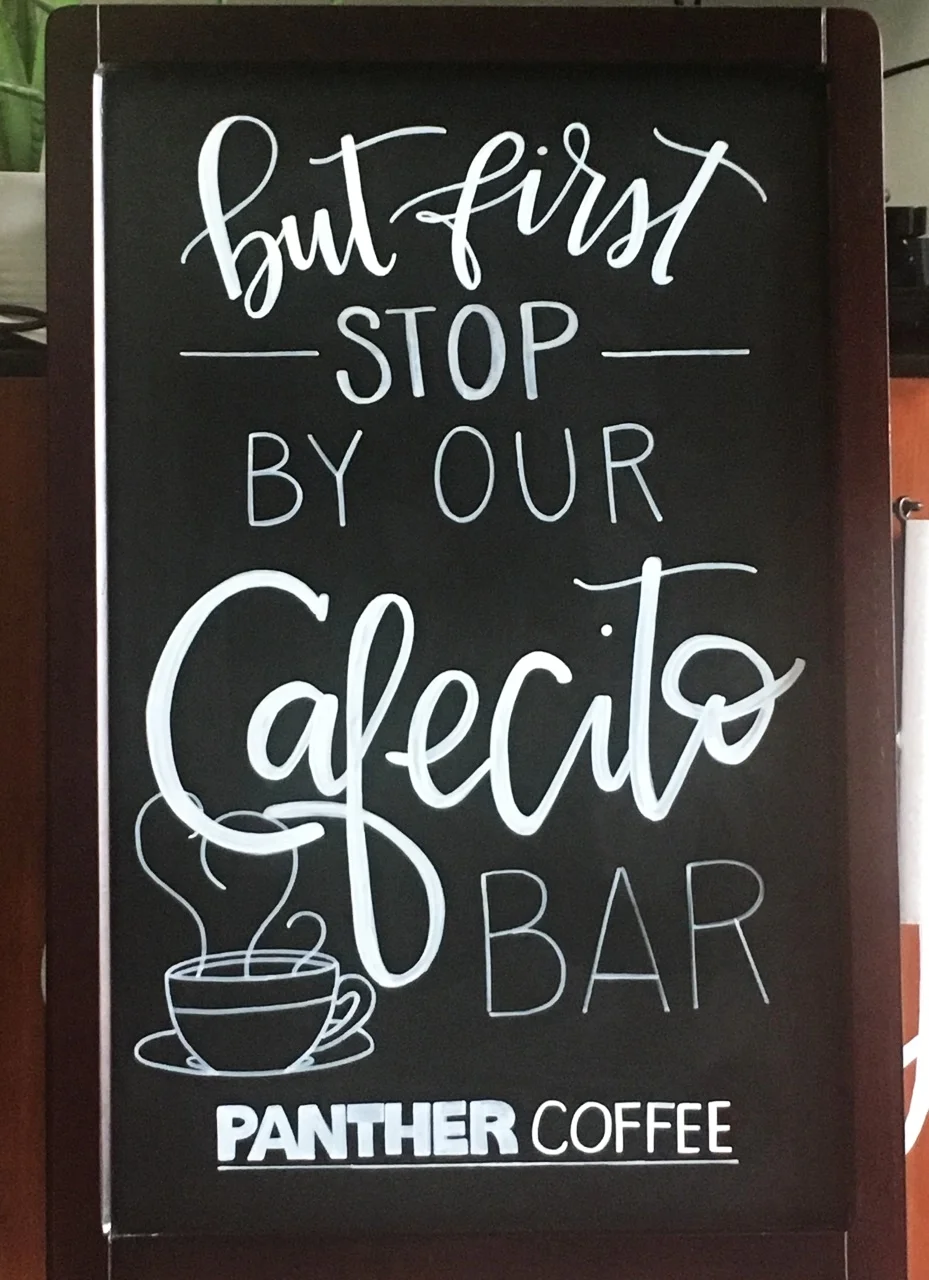 but first
STOP
BY OUR
Cafecito
BAR
PANTHER COFFEE